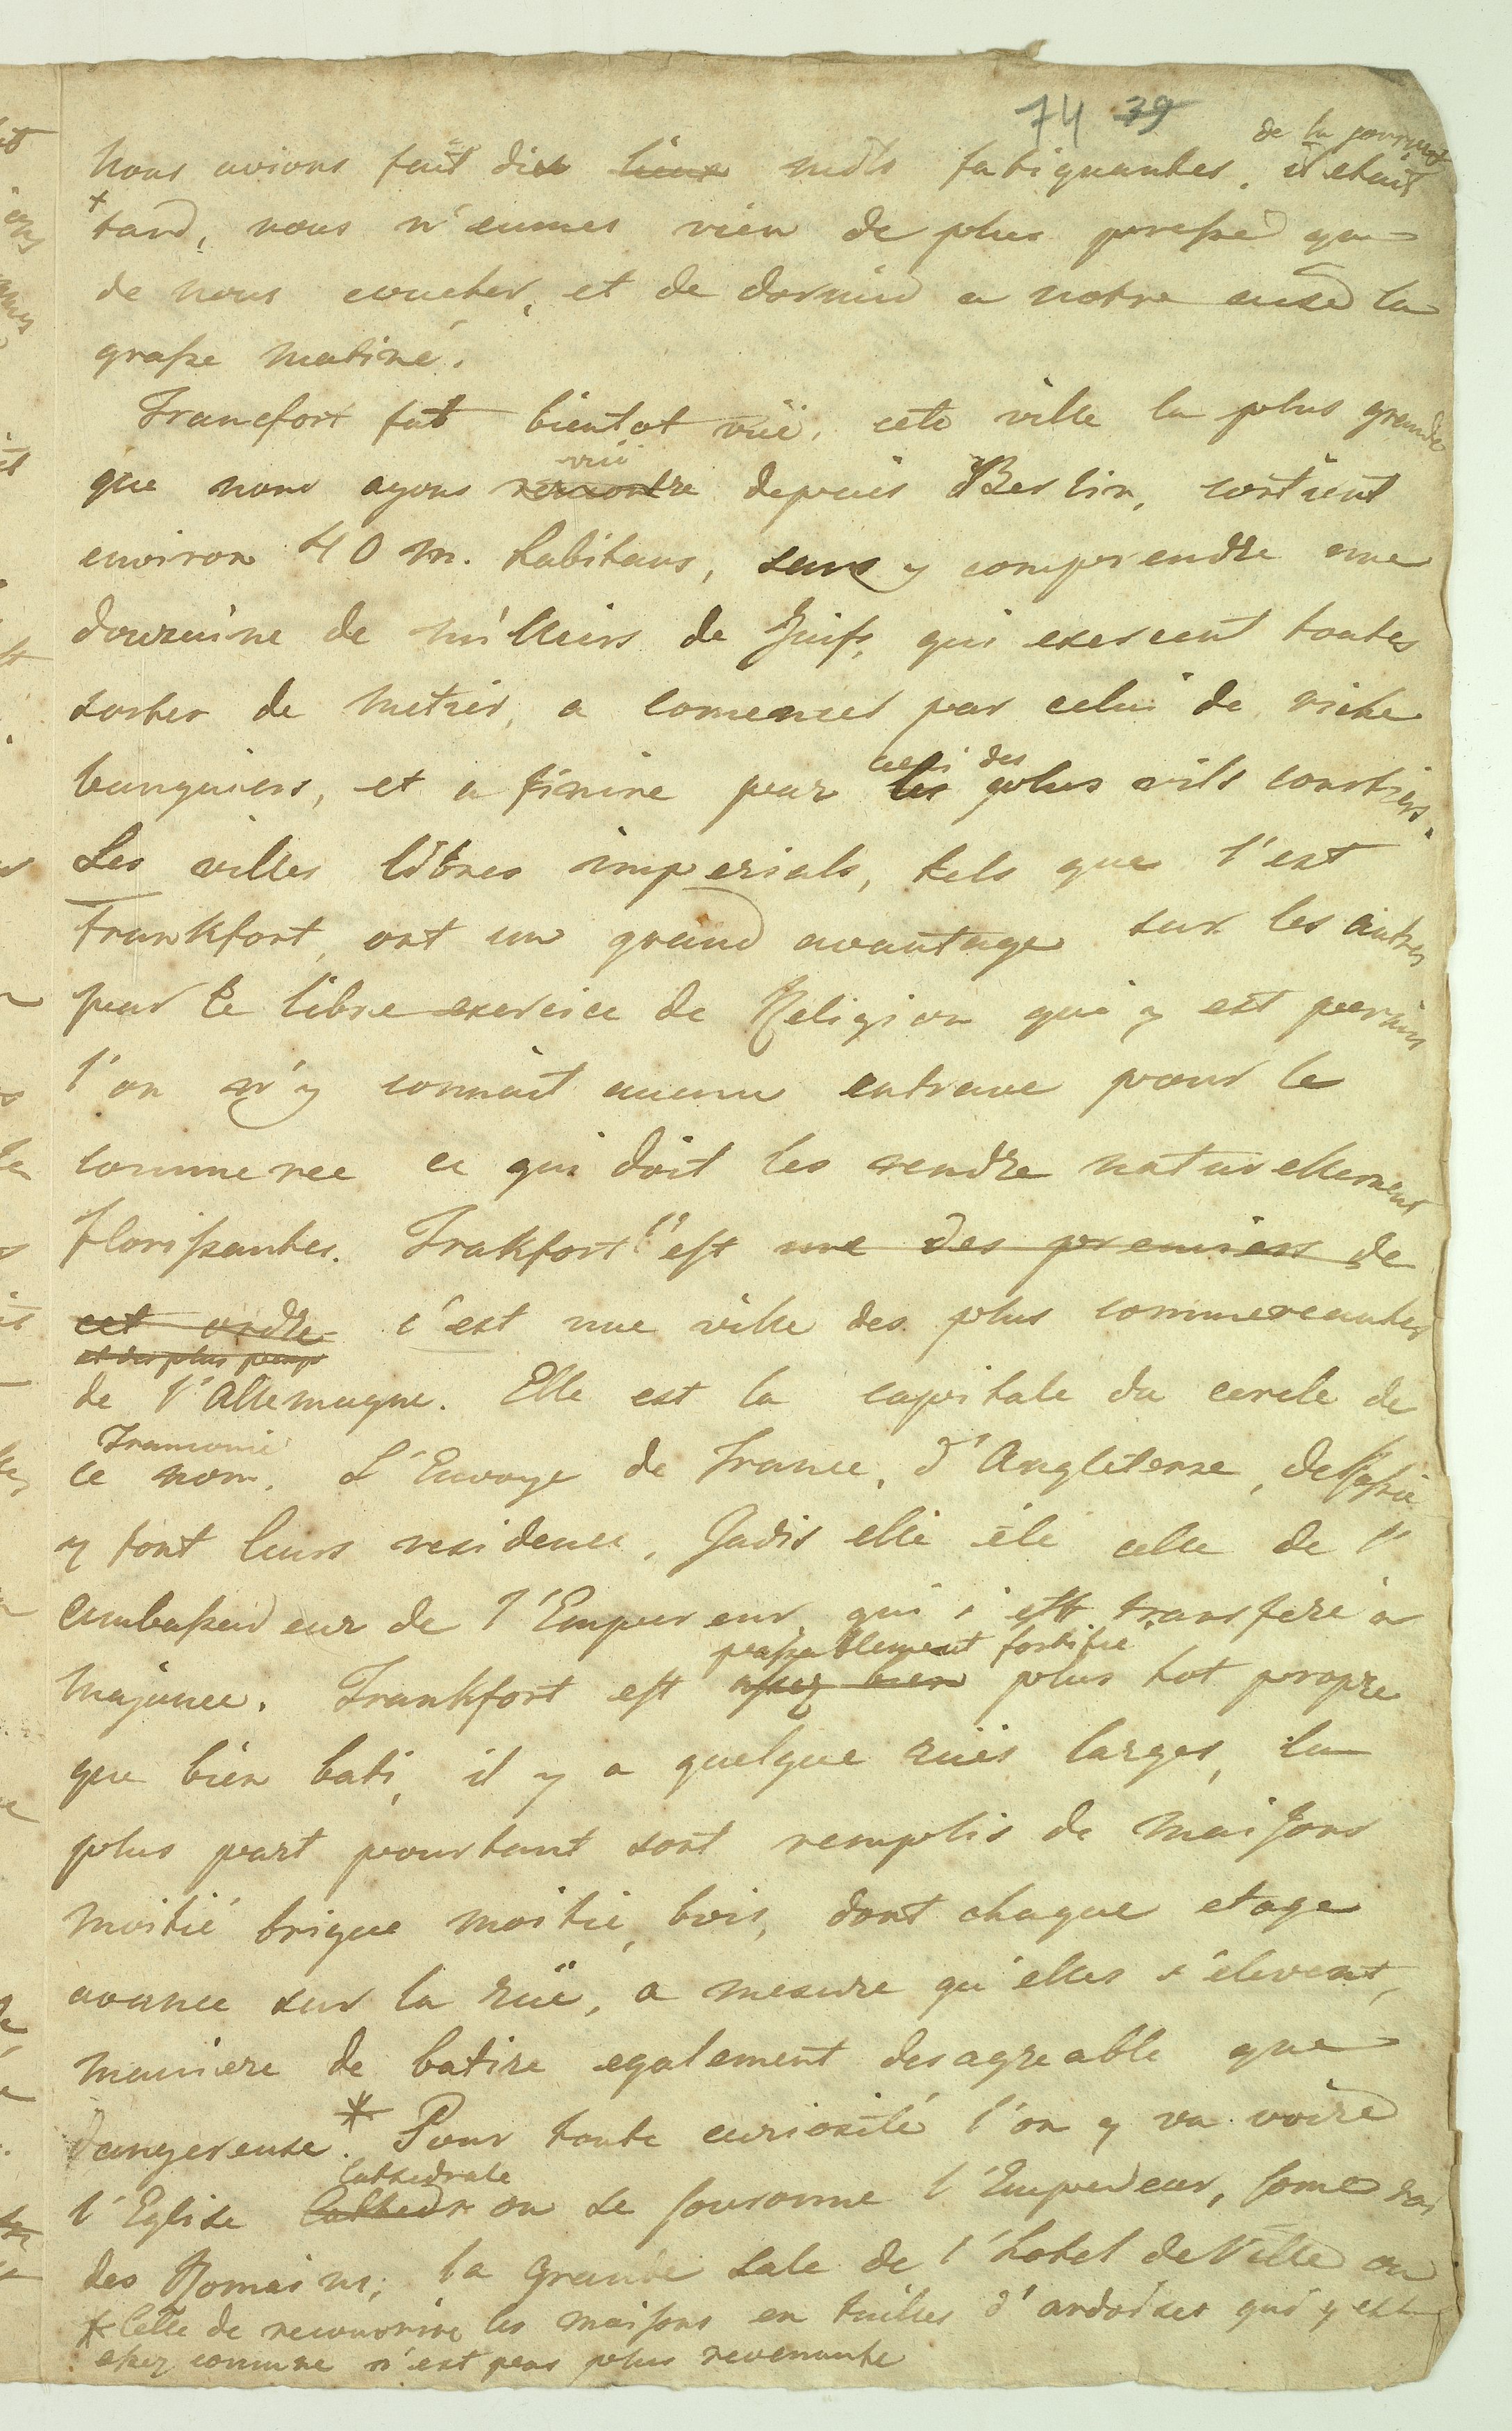 74 39
de la journée
nous avions fait dix lieux mils fatiguantes. il etait
+ tard, nous n'eumes rien de plus pressé que
de nous coucher, et de dormir a notre aise la
grasse matiné.
Francfort fut bientot vüe, cete ville la plus grande
vüe
que nous ayons rencontre depuis Berlin, contient
environ 40 m. habitans, sans y comprendre une
douzaine de milliers de Juifs, qui exercent toutes
sortes de metier, a comencer par celui de riche
banquiers, et a finire par les plus vils courtiers.
celui des
Les villes libres imperials, tels que l'est
Frankfort, ont un grand avantage sur les autres
par le libre exercice de Religion qui y est permis
l'on n'y connait aucune entrave pour le
commerce ce qui doit les rendre naturellement
florissantes. Frakfort l'est une des premiers de
cet ordre c'est une ville des plus commercantes
et des plus peup
de l'Allemagne. Elle est la capitale du cercle de
Franconie
ce nom. L'Envoye de France, d'Angleterre, de Russie
y font leurs residence, Jadis elle été celle de l'
ambassadeur de l'Empereur qui s'est transferé à
passablement fortifié
majence. Frankfort est assez bien plus tot propre
que bien bati, il y a quelque rües larges, la
plus part pourtant sont remplis de maisons
moitié brique moitié bois, dont chaque etage
avance sur la rüe, a mesure qu'elles s'elevent,
maniere de batire egalement desagreable que
dangereuse.* Pour toute curiosité l'on y va voire
Cathedrale
l'Eglise Cathedr ou se couronne l'Empereur, some roi
des Romains; la grande sale de l'hotel de Ville ou
* Celle de recouvrire les maisons en tuilles d'ardoises qui y est
assez comune n'est pas plus revenante